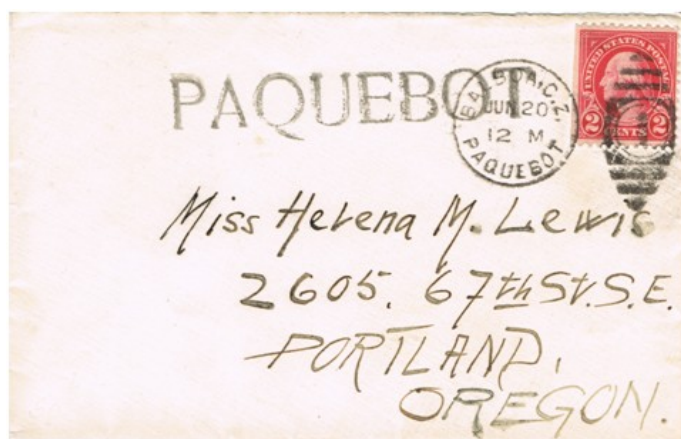 PAQUEBOT
BALBOA, C.Z.
JUN 20
12 M
PAQUEBOT
UNITED STATES POSTAGE
2 CENTS 2
Miss Helena M. Lewis
2605. 67th St. S.E.
PORTLAND,
OREGON.